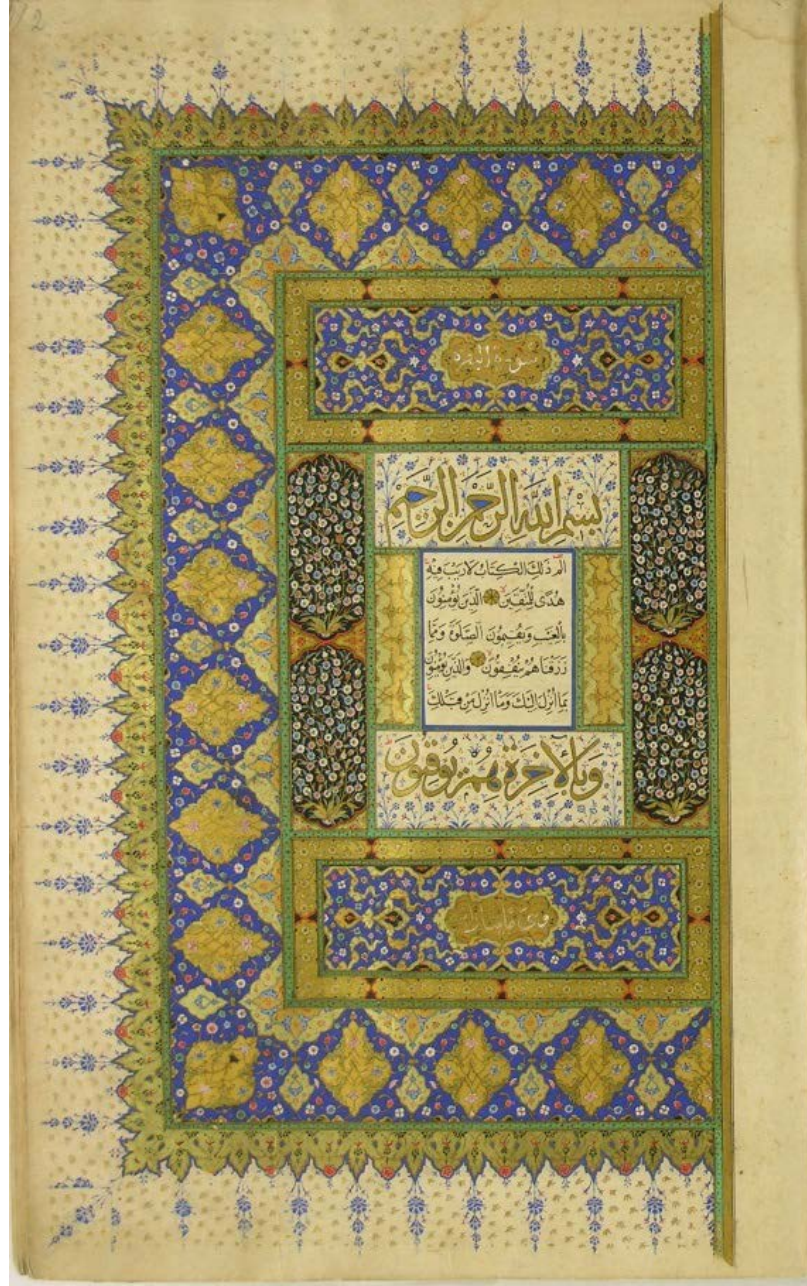 2
سورة البقرة
بسم الله الرحمن الرحيم
الم ذلك الكتاب لا ريب فيه
هدى للمتقين الذين يؤمنون
بالغيب ويقيمون الصلوة ومما
رزقناهم ينفقون والذين يؤمنون
بما أنزل إليك وما أنزل من قبلك
وبالآخرة هم يوقنون